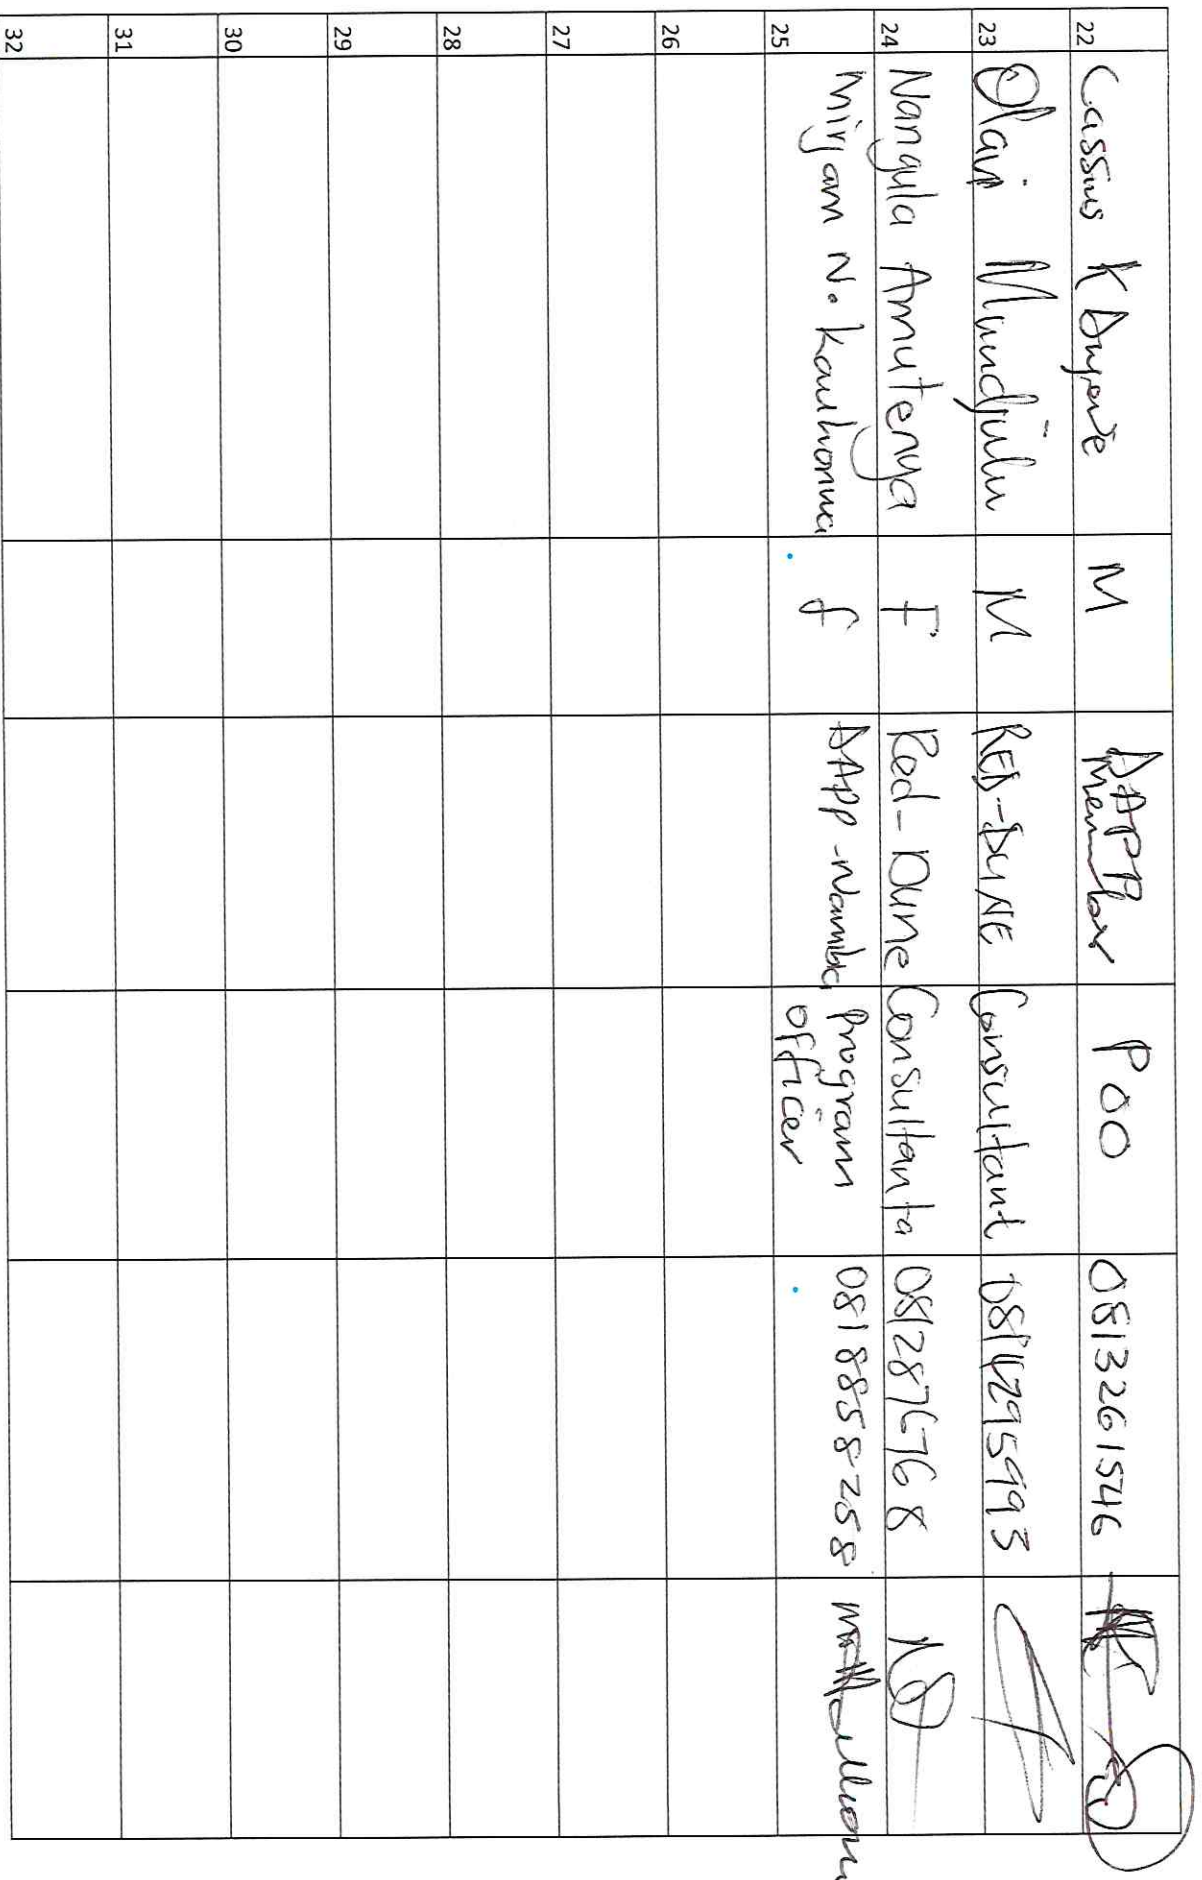 22 Cassius K M DAPP Member POO 0813261546
23 Olavi Mundjulu M RED-DUNE Consultant
24 Nangula Amutenya F Red-Dune Consultant 0812876768
25 Mirjam N. f DAPP-Namibia Program officer 0818858258
26
27
28
29
30
31
32